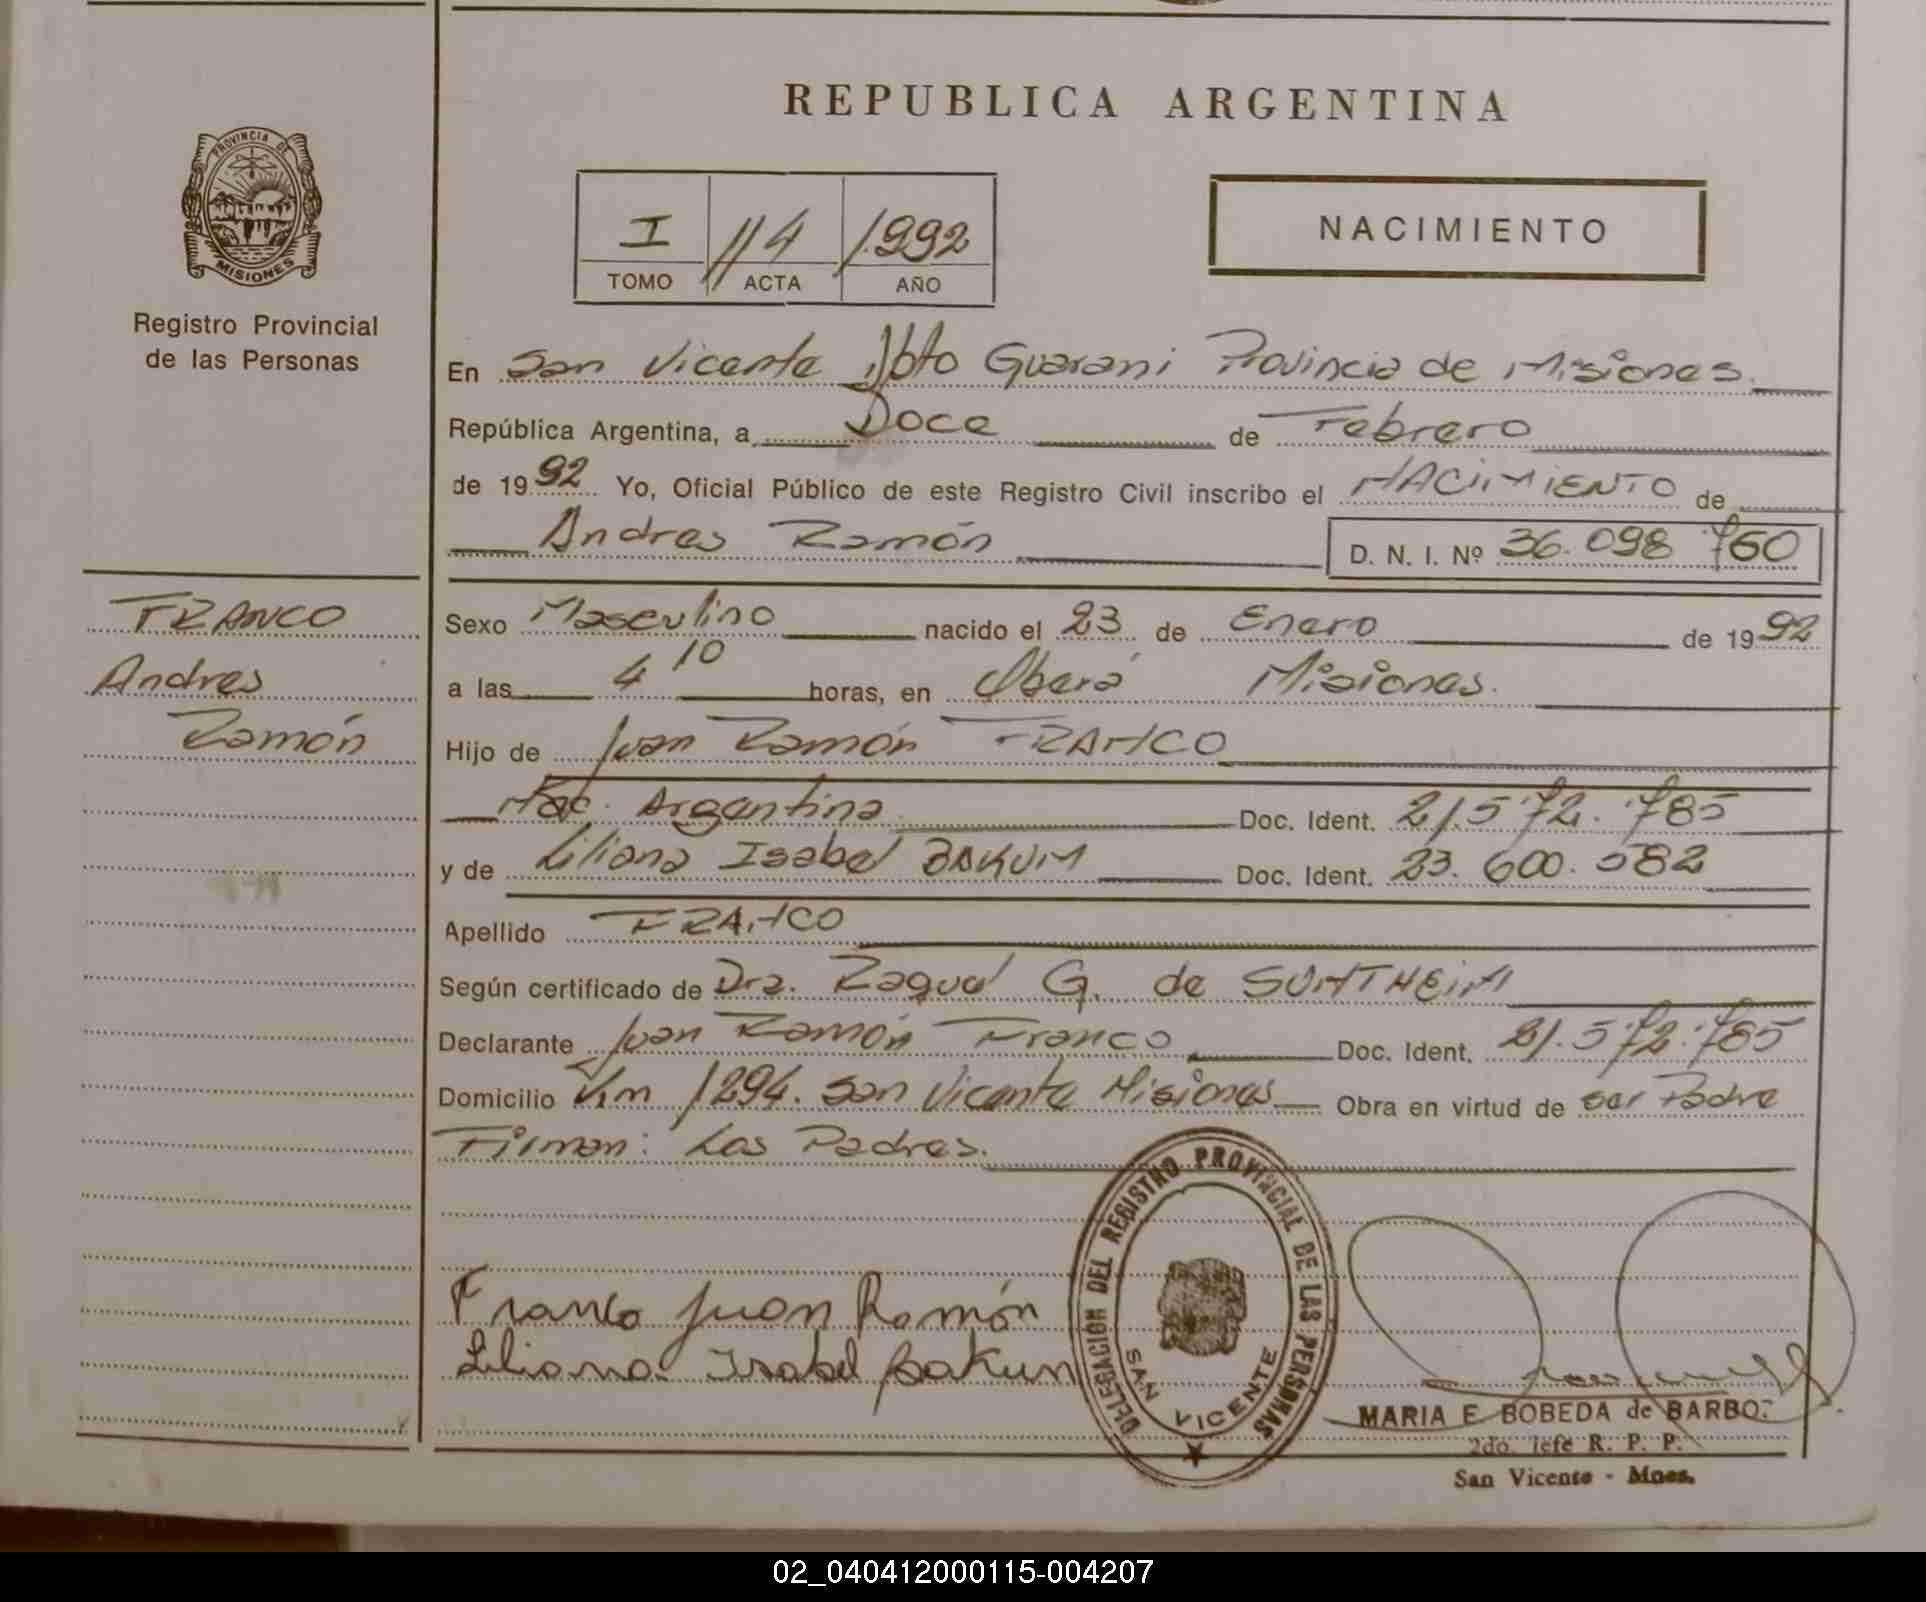 REPUBLICA ARGENTINA
PROVINCIA DE
MISIONES
Registro Provincial
de las Personas
I 114 1992
TOMO ACTA AÑO
NACIMIENTO
En San Vicente Dpto Guarani Provincia de Misiones.
República Argentina, a Doce de Febrero
de 1992 Yo, Oficial Público de este Registro Civil inscribo el NACIMIENTO de
Andres Ramón D. N. I. Nº 36.098 760
FRANCO
Andres
Ramón
Sexo Masculino nacido el 23 de Enero de 1992
a las 4 10 horas, en Oberá Misiones.
Hijo de Juan Ramón FRANCO
Nac. Argentina Doc. Ident. 21.572.785
y de Liliana Isabel BAKUN Doc. Ident. 23.600.582
Apellido FRANCO
Según certificado de Dra. Raquel G. de SUNTHEIM
Declarante Juan Ramón Franco Doc. Ident. 21.572.785
Domicilio Km 1294. San Vicente Misiones Obra en virtud de ser Padre
Firman: Los Padres.
Franco Juan Ramón
Liliana Isabel Bakun
DELEGACIÓN DEL REGISTRO PROVINCIAL DE LAS PERSONAS
SAN VICENTE
MARIA E BOBEDA de BARBO
2do. Jefe R. P. P.
San Vicente - Mnes.
02_040412000115-004207